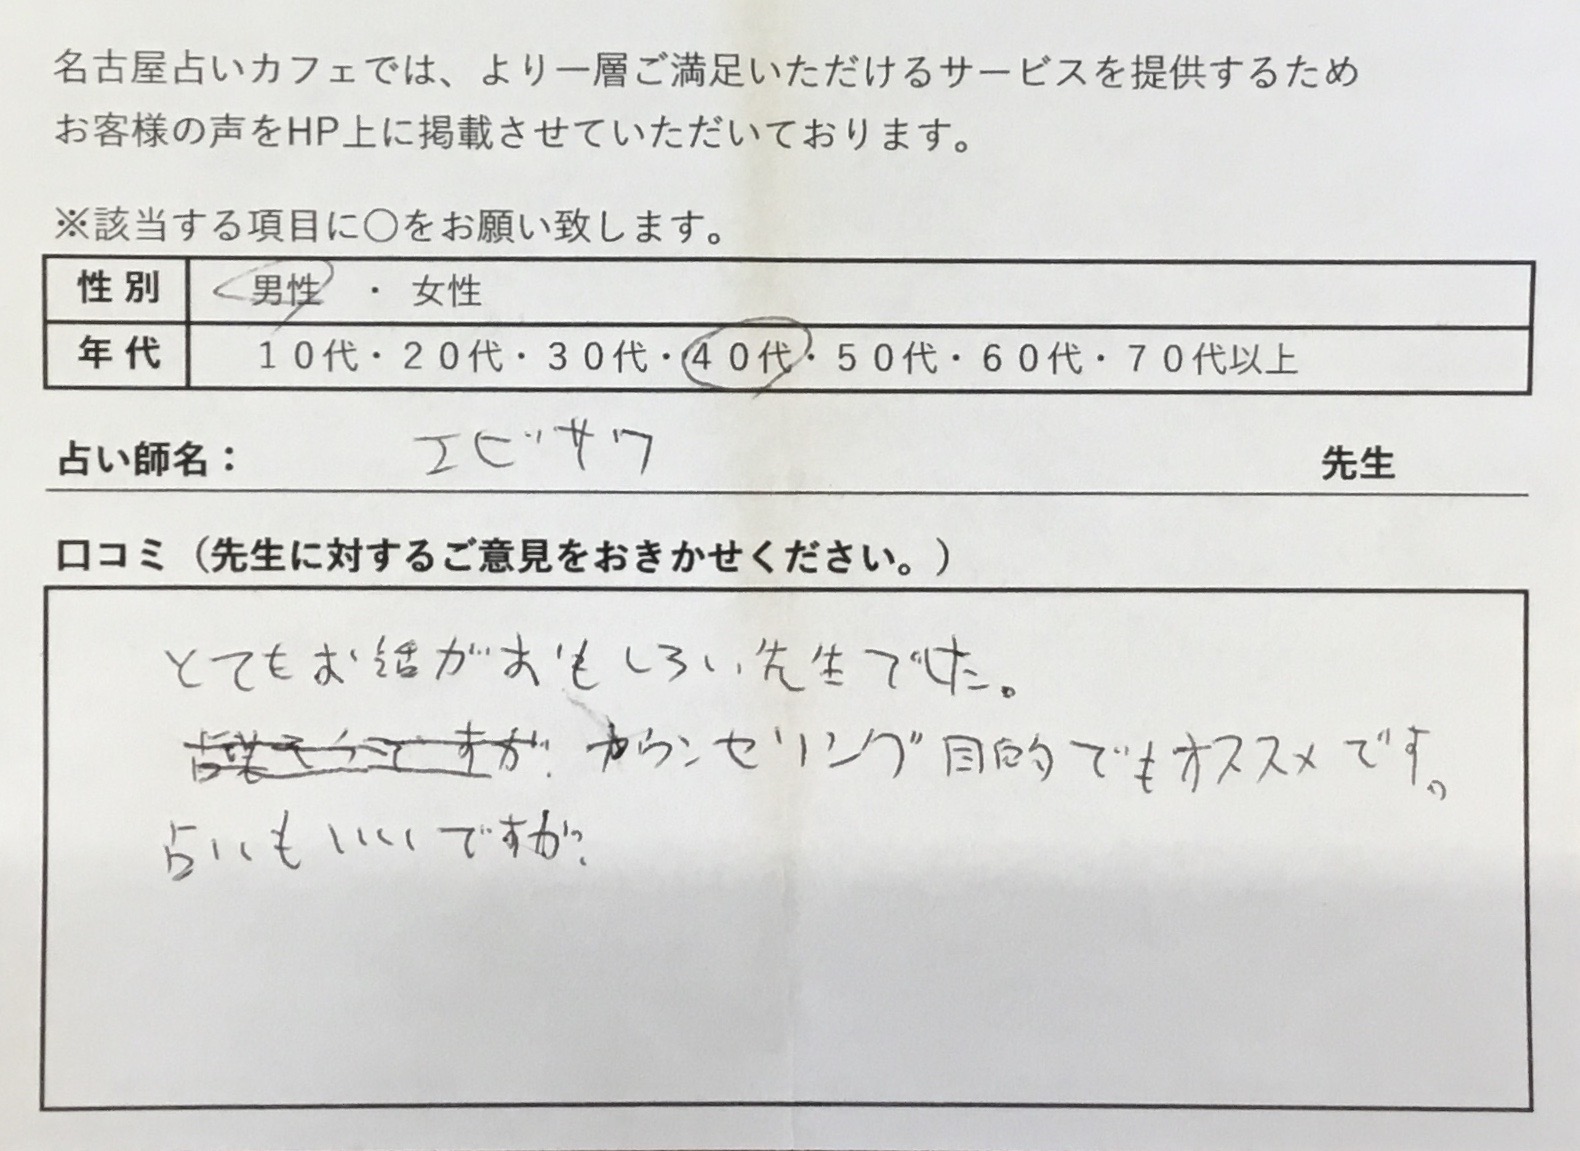 名古屋占いカフェでは、より一層ご満足いただけるサービスを提供するため
お客様の声をHP上に掲載させていただいております。
※該当する項目に〇をお願い致します。
性別 男性 ・ 女性
年代 10代・20代・30代・40代・50代・60代・70代以上
占い師名： エビサワ 先生
口コミ（先生に対するご意見をおきかせください。）
とてもお話がおもしろい先生でした。
カウンセリング目的でもオススメです。
占いもいいですが、